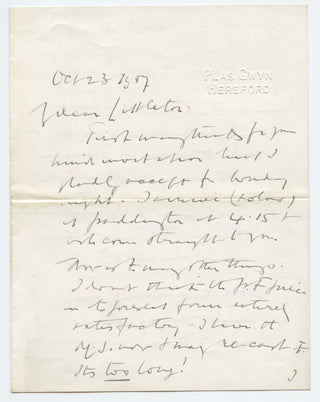 Oct 23 1907
PLAS GWYN,
HEREFORD.
My dear Littleton:
First many thanks for your
kind invitation which I
gladly accept for Monday
night. I arrive (
at Paddington at 4.15 &
will come straight to you.
Now as to many other things:
I don't think the p.f.
in its present form entirely
satisfactory - I have the
M.S. now & may re-cast it.
Its too long!
I